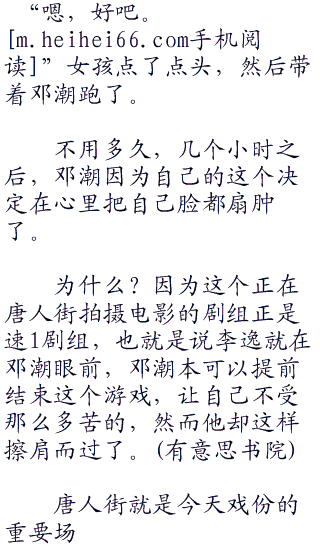 “嗯，好吧。
[m.heihei66.com手机阅
读]”女孩点了点头，然后带
着邓潮跑了。
不用多久，几个小时之
后，邓潮因为自己的这个决
定在心里把自己脸都扇肿
了。
为什么？因为这个正在
唐人街拍摄电影的剧组正是
速1剧组，也就是说李逸就在
邓潮眼前，邓潮本可以提前
结束这个游戏，让自己不受
那么多苦的，然而他却这样
擦肩而过了。(有意思书院)
唐人街就是今天戏份的
重要场